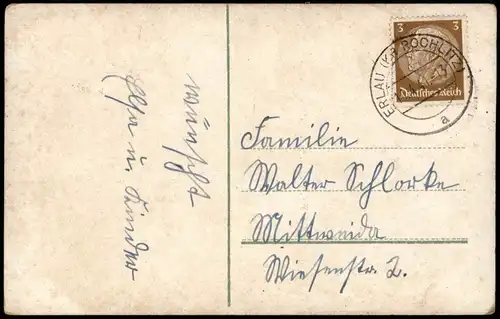 wünscht
Elsa u. Kinder
3 3
Deutsches Reich
ERLAU (KR. ROCHLITZ)
a
Familie
Walter Schlorke
Mittweida
Wiesenstr. 2.